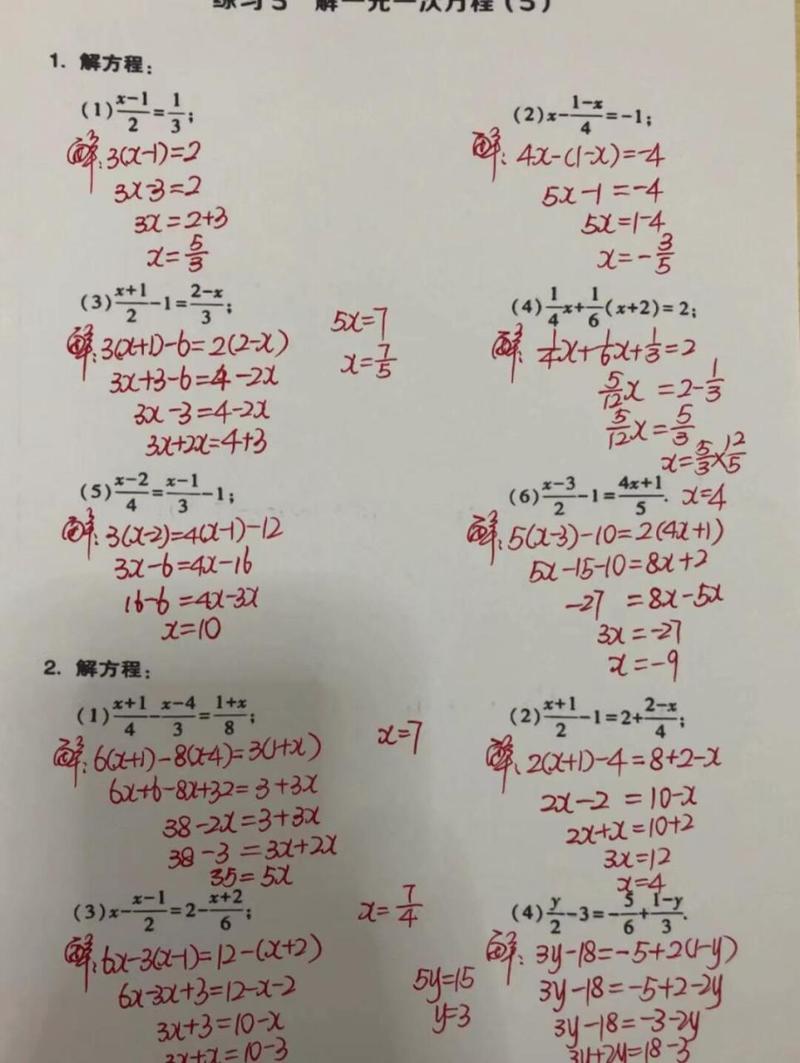 练习5 解一元一次方程(5)
1. 解方程:
(1) \frac{x-1}{2}=\frac{1}{3};
解: 3(x-1)=2
3x-3=2
3x=2+3
x=\frac{5}{3}
(2) x-\frac{1-x}{4}=-1;
解: 4x-(1-x)=-4
5x-1=-4
5x=1-4
x=-\frac{3}{5}
(3) \frac{x+1}{2}-1=\frac{2-x}{3};
解: 3(x+1)-6=2(2-x)
3x+3-6=4-2x
3x-3=4-2x
3x+2x=4+3
5x=7
x=\frac{7}{5}
(4) \frac{1}{4}x+\frac{1}{6}(x+2)=2;
解: \frac{1}{4}x+\frac{1}{6}x+\frac{1}{3}=2
\frac{5}{12}x=2-\frac{1}{3}
\frac{5}{12}x=\frac{5}{3}
x=\frac{5}{3}×\frac{12}{5}
x=4
(5) \frac{x-2}{4}=\frac{x-1}{3}-1;
解: 3(x-2)=4(x-1)-12
3x-6=4x-16
16-6=4x-3x
x=10
(6) \frac{x-3}{2}-1=\frac{4x+1}{5}.
解: 5(x-3)-10=2(4x+1)
5x-15-10=8x+2
-27=8x-5x
3x=-27
x=-9
2. 解方程:
(1) \frac{x+1}{4}-\frac{x-4}{3}=\frac{1+x}{8};
解: 6(x+1)-8(x-4)=3(1+x)
6x+6-8x+32=3+3x
38-2x=3+3x
38-3=3x+2x
35=5x
x=7
(2) \frac{x+1}{2}-1=2+\frac{2-x}{4};
解: 2(x+1)-4=8+2-x
2x-2=10-x
2x+x=10+2
3x=12
x=4
(3) x-\frac{x-1}{2}=2-\frac{x+2}{6};
解: 6x-3(x-1)=12-(x+2)
6x-3x+3=12-x-2
3x+3=10-x
3x+x=10-3
x=\frac{7}{4}
(4) \frac{y}{2}-3=-\frac{5}{6}+\frac{1-y}{3}.
解: 3y-18=-5+2(1-y)
3y-18=-5+2-2y
3y-18=-3-2y
3y+2y=18-3
5y=15
y=3